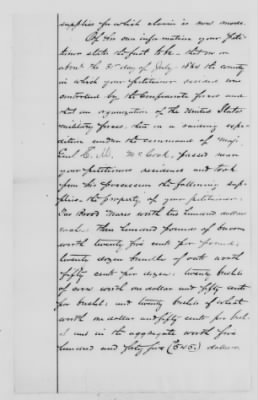 supplies for which claim is now made.
Of his own information your Peti-
tioner states the fact to be - that on or
about the 31st day of July 1864 the county
in which your petitioner resided was
controlled by the Confederate forces and
that an organization of the United States
military forces, then on a raiding expe-
dition under the command of Maj.
Genl E. M. McCook, passed near
your petitioners residence and took
from his possession the following sup-
plies the property of your petitioner:
Two Brood Mares worth two hundred dollars
each. Three hundred pounds of bacon
worth twenty five cents per pound,
twenty dozen bundles of oats worth
fifty cents per dozen; twenty bushels
of corn worth one dollar and fifty cents
per bushel; and twenty bushels of wheat
worth one dollar and fifty cents per bush-
el and in the aggregate worth five
hundred and forty five (545.) dollars